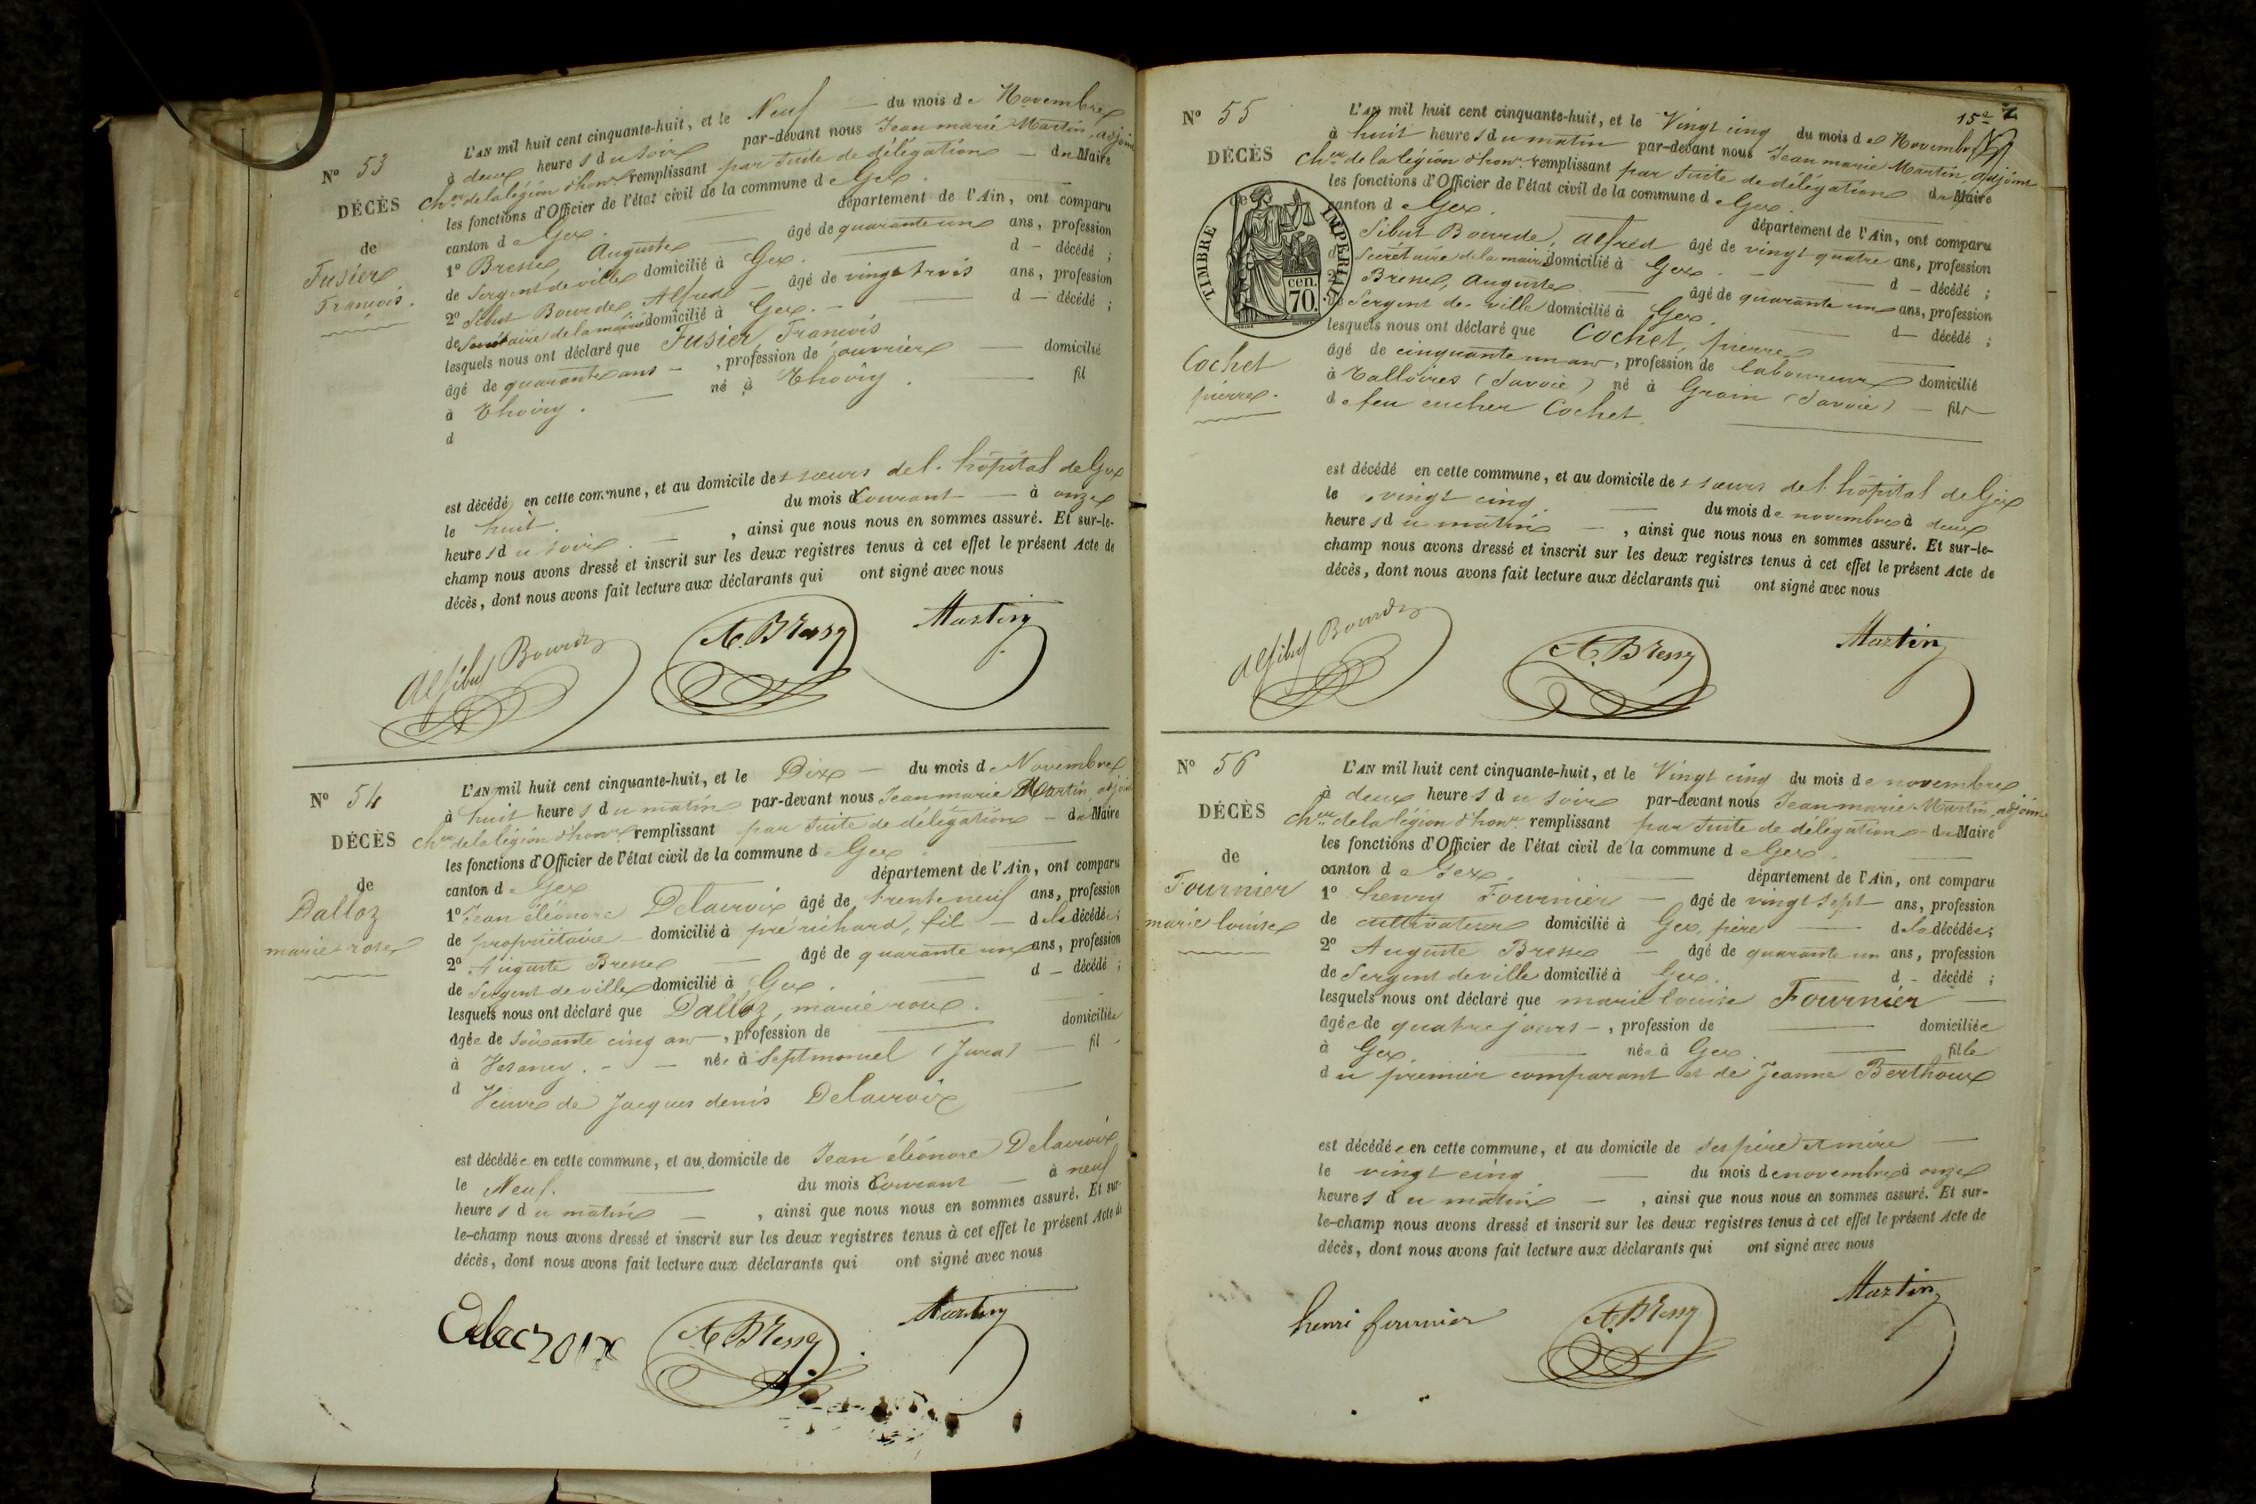 N° 53
DÉCÈS
de
Fusier
François.
L'AN mil huit cent cinquante-huit, et le Neuf — du mois de Novembre
à deux heures du soir par-devant nous Jean marie Martin, adjoint
Ch.er de la légion d'hon.r remplissant par suite de délégation — du Maire
les fonctions d'Officier de l'état civil de la commune de Gex.
canton de Gex. département de l'Ain, ont comparu
1° Bresse, Auguste — âgé de quarante un ans, profession
de Sergent de ville domicilié à Gex. d — décédé ;
2° Sibut Bourde, Alfred — âgé de vingt trois ans, profession
de Secrétaire de la mairie domicilié à Gex. — d — décédé ;
lesquels nous ont déclaré que Fusier, François
âgé de quarante ans — , profession de ouvrier — domicilié
à Thoiry. — né à Thoiry. — fil
d
est décédé en cette commune, et au domicile des sœurs de l'hôpital de Gex
le huit. — du mois Courant — à onze
heures du soir. — , ainsi que nous nous en sommes assuré. Et sur-le-
champ nous avons dressé et inscrit sur les deux registres tenus à cet effet le présent Acte de
décès, dont nous avons fait lecture aux déclarants qui ont signé avec nous
Alf Sibut Bourde A. Bresse Martin
N° 54
DÉCÈS
de
Dalloz
marie rose
L'AN mil huit cent cinquante-huit, et le Dix — du mois de Novembre
à huit heures du matin par-devant nous Jean marie Martin, adjoint
Ch.er de la légion d'hon.r remplissant par suite de délégation — du Maire
les fonctions d'Officier de l'état civil de la commune de Gex.
canton de Gex département de l'Ain, ont comparu
1° Jean éléonore Delacroix âgé de trente neuf ans, profession
de propriétaire — domicilié à pré richard, fil — de la décédée ;
2° Auguste Bresse — âgé de quarante un ans, profession
de Sergent de ville domicilié à Gex. — d — décédé ;
lesquels nous ont déclaré que Dalloz, marie rose.
âgée de soixante cinq ans —, profession de — domiciliée
à — née à Septmoncel (Jura) — fil
d Veuve de Jacques denis Delacroix
est décédée en cette commune, et au domicile de Jean éléonore Delacroix
le Neuf. — du mois Courant — à neuf
heures du matin — , ainsi que nous nous en sommes assuré. Et sur-
le-champ nous avons dressé et inscrit sur les deux registres tenus à cet effet le présent Acte de
décès, dont nous avons fait lecture aux déclarants qui ont signé avec nous
Delacroix A. Bresse Martin
15e
N° 55
DÉCÈS
de
TIMBRE IMPÉRIAL
70 cen.
Cochet
pierre.
L'AN mil huit cent cinquante-huit, et le Vingt cinq du mois de Novembre
à huit heures du matin par-devant nous Jean marie Martin, adjoint
Ch.er de la légion d'hon.r remplissant par suite de délégation du Maire
les fonctions d'Officier de l'état civil de la commune de Gex.
canton de Gex. — département de l'Ain, ont comparu
Sibut Bourde, Alfred âgé de vingt quatre ans, profession
Secrétaire de la mairie domicilié à Gex. — d — décédé ;
Bresse, Auguste — âgé de quarante un ans, profession
de Sergent de ville domicilié à Gex. — d — décédé ;
lesquels nous ont déclaré que Cochet, pierre
âgé de cinquante un ans, profession de laboureur domicilié
à Talloires (Savoie) né à (Savoie) — fils
de feu eucher Cochet.
est décédé en cette commune, et au domicile des sœurs de l'hôpital de Gex
le vingt cinq — du mois de novembre à deux
heures du matin — , ainsi que nous nous en sommes assuré. Et sur-le-
champ nous avons dressé et inscrit sur les deux registres tenus à cet effet le présent Acte de
décès, dont nous avons fait lecture aux déclarants qui ont signé avec nous
Alf Sibut Bourde A. Bresse Martin
N° 56
DÉCÈS
de
Fournier
marie louise
L'AN mil huit cent cinquante-huit, et le Vingt cinq du mois de novembre
à deux heures du soir par-devant nous Jean marie Martin, adjoint
Ch.er de la légion d'hon.r remplissant par suite de délégation — du Maire
les fonctions d'Officier de l'état civil de la commune de Gex.
canton de Gex. — département de l'Ain, ont comparu
1° henry Fournier — âgé de vingt sept ans, profession
de cultivateur domicilié à Gex, père — de la décédée ;
2° Auguste Bresse — âgé de quarante un ans, profession
de Sergent de ville domicilié à Gex. d — décédé ;
lesquels nous ont déclaré que marie louise Fournier —
âgée de quatre jours — , profession de — domiciliée
à Gex. — née à Gex. — fille
du premier comparant et de Jeanne Berthoux
est décédée en cette commune, et au domicile de ses père et mère —
le vingt cinq — du mois de novembre à onze
heures du matin — , ainsi que nous nous en sommes assuré. Et sur-
le-champ nous avons dressé et inscrit sur les deux registres tenus à cet effet le présent Acte de
décès, dont nous avons fait lecture aux déclarants qui ont signé avec nous
henri fournier A. Bresse Martin